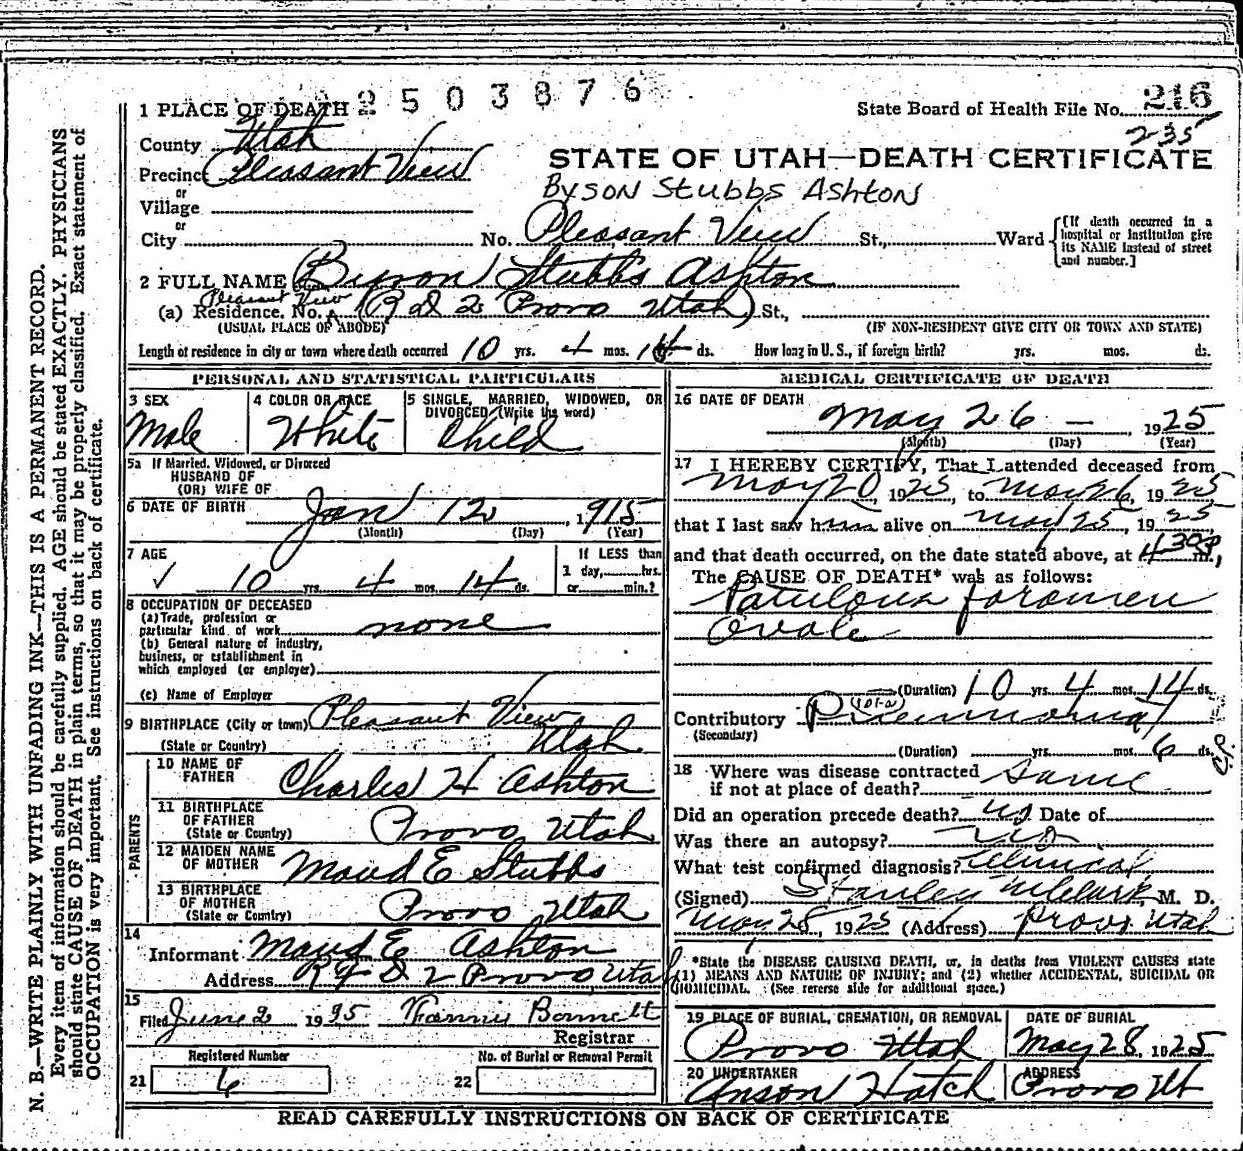 2503876
1 PLACE OF DEATH
State Board of Health File No. 216
235
County Utah
STATE OF UTAH—DEATH CERTIFICATE
Precinct Pleasant View
Byson Stubbs Ashton
or
Village
or
City No. Pleasant View St., Ward
[If death occurred in a hospital or institution give its NAME instead of street and number.]
2 FULL NAME Byron Stubbs Ashton
Pleasant View
(a) Residence. No. (R d 2 Provo Utah) St.,
(USUAL PLACE OF ABODE) (IF NON-RESIDENT GIVE CITY OR TOWN AND STATE)
Length of residence in city or town where death occurred 10 yrs. 4 mos. 14 ds. How long in U. S., if foreign birth? yrs. mos. ds.
PERSONAL AND STATISTICAL PARTICULARS
3 SEX
Male
4 COLOR OR RACE
White
5 SINGLE, MARRIED, WIDOWED, OR DIVORCED (Write the word)
Child
5a If Married, Widowed, or Divorced
HUSBAND OF
(OR) WIFE OF
6 DATE OF BIRTH Jan 12, 1915
(Month) (Day) (Year)
7 AGE
✓ 10 yrs. 4 mos. 14 ds.
If LESS than
1 day,......hrs.
or......min.?
8 OCCUPATION OF DECEASED
(a) Trade, profession or
particular kind of work none
(b) General nature of industry,
business, or establishment in
which employed (or employer)
(c) Name of Employer
9 BIRTHPLACE (City or town) Pleasant View
(State or Country) Utah
PARENTS
10 NAME OF FATHER Charles H Ashton
11 BIRTHPLACE OF FATHER
(State or Country) Provo Utah
12 MAIDEN NAME OF MOTHER Maud E Stubbs
13 BIRTHPLACE OF MOTHER
(State or Country) Provo Utah
14
Informant Maud E Ashton
Address R F D 2 Provo, Utah
15
Filed June 2 1925 Fannie Bonnett
Registrar
Registered Number
21 6
No. of Burial or Removal Permit
22
MEDICAL CERTIFICATE OF DEATH
16 DATE OF DEATH
May 26 — 1925
(Month) (Day) (Year)
17 I HEREBY CERTIFY, That I attended deceased from
May 20, 1925, to May 26, 1925
that I last saw him alive on May 25, 1925
and that death occurred, on the date stated above, at 430P m.,
The CAUSE OF DEATH* was as follows:
Patulous foramen
Ovale
(Duration) 10 yrs. 4 mos. 14 ds.
Contributory Pneumonia
(Secondary)
(Duration) yrs. mos. 6 ds.
18 Where was disease contracted
if not at place of death? Same
Did an operation precede death? no Date of
Was there an autopsy? no
What test confirmed diagnosis? Clinical
(Signed) Stanley M Clark, M. D.
May 28, 1925 (Address) Provo Utah
*State the DISEASE CAUSING DEATH, or, in deaths from VIOLENT CAUSES state
(1) MEANS AND NATURE OF INJURY; and (2) whether ACCIDENTAL, SUICIDAL OR
HOMICIDAL. (See reverse side for additional space.)
19 PLACE OF BURIAL, CREMATION, OR REMOVAL
Provo Utah
DATE OF BURIAL
May 28, 1925
20 UNDERTAKER
Anson Hatch
ADDRESS
Provo Ut
READ CAREFULLY INSTRUCTIONS ON BACK OF CERTIFICATE
N. B.—WRITE PLAINLY WITH UNFADING INK—THIS IS A PERMANENT RECORD.
Every item of information should be carefully supplied. AGE should be stated EXACTLY. PHYSICIANS
should state CAUSE OF DEATH in plain terms, so that it may be properly classified. Exact statement of
OCCUPATION is very important. See instructions on back of certificate.